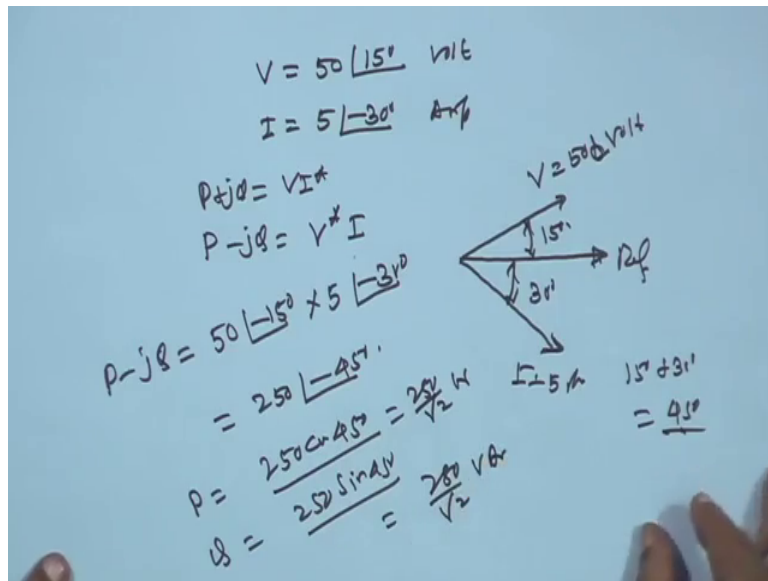 V = 50∠15° volt
I = 5∠-30° Amp
P+jQ = VI*
P-jQ = V* I
P-jQ = 50∠-15° × 5∠-30°
= 250∠-45°.
P = 250 Cos 45° = 250/√2 W
Q = 250 Sin 45° = 250/√2 VAr
V = 50 volt
15°
Ref
30°
I = 5 A
15° + 30°
= 45°